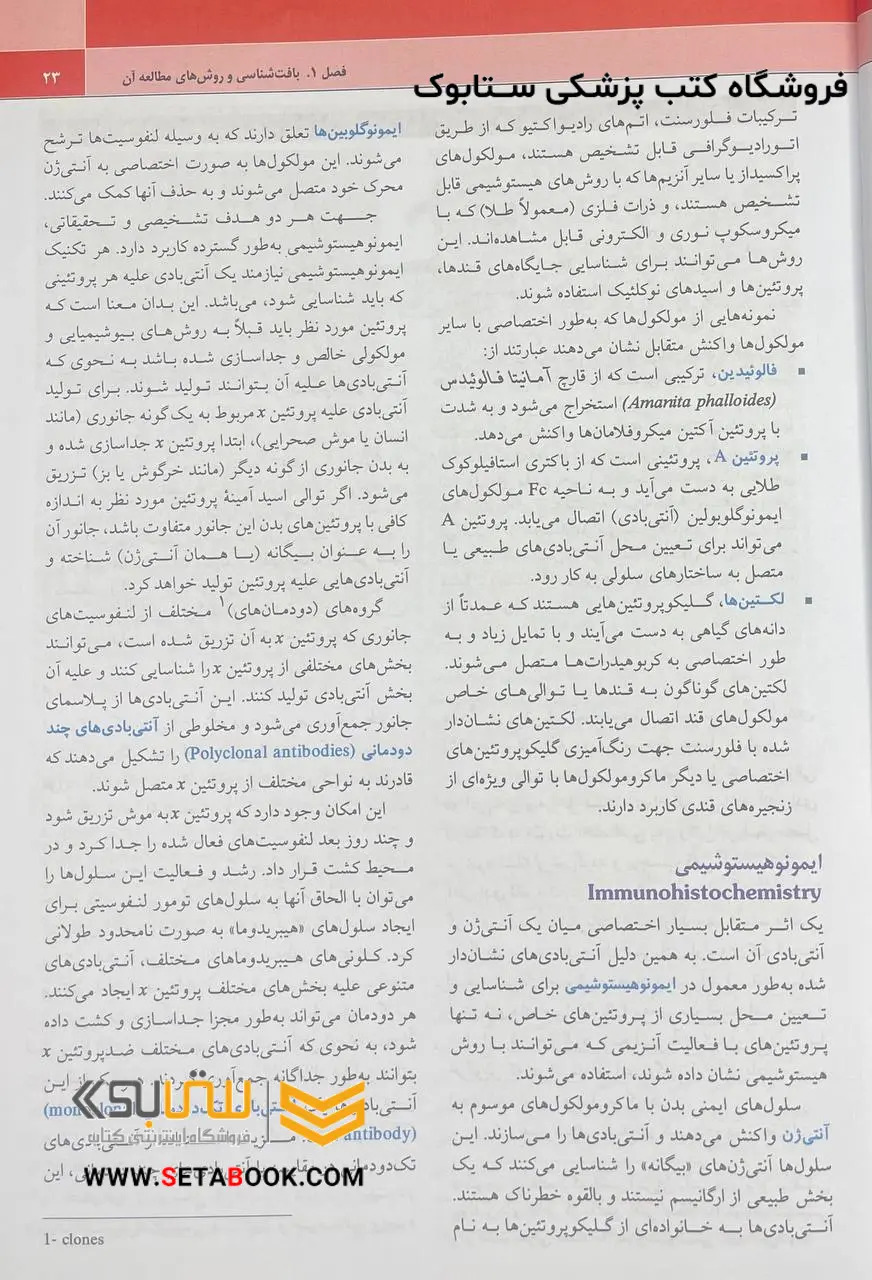 فصل ۱. بافت‌شناسی و روش‌های مطالعه آن
۲۳
فروشگاه کتب پزشکی ستابوک
ترکیبات فلورسنت، اتم‌های رادیواکتیو که از طریق
اتورادیوگرافی قابل تشخیص هستند، مولکول‌های
پراکسیداز یا سایر آنزیم‌ها که با روش‌های هیستوشیمی قابل
تشخیص هستند، و ذرات فلزی (معمولاً طلا) که با
میکروسکوپ نوری و الکترونی قابل مشاهده‌اند. این
روش‌ها می‌توانند برای شناسایی جایگاه‌های قندها،
پروتئین‌ها و اسیدهای نوکلئیک استفاده شوند.
نمونه‌هایی از مولکول‌ها که به‌طور اختصاصی با سایر
مولکول‌ها واکنش متقابل نشان می‌دهند عبارتند از:
■ فالوئیدین، ترکیبی است که از قارچ آمانیتا فالوئیدس
(Amanita phalloides) استخراج می‌شود و به شدت
با پروتئین آکتین میکروفلامان‌ها واکنش می‌دهد.
■ پروتئین A، پروتئینی است که از باکتری استافیلوکوک
طلایی به دست می‌آید و به ناحیه Fc مولکول‌های
ایمونوگلوبولین (آنتی‌بادی) اتصال می‌یابد. پروتئین A
می‌تواند برای تعیین محل آنتی‌بادی‌های طبیعی یا
متصل به ساختارهای سلولی به کار رود.
■ لکتین‌ها، گلیکوپروتئین‌هایی هستند که عمدتاً از
دانه‌های گیاهی به دست می‌آیند و با تمایل زیاد و به
طور اختصاصی به کربوهیدرات‌ها متصل می‌شوند.
لکتین‌های گوناگون به قندها یا توالی‌های خاص
مولکول‌های قند اتصال می‌یابند. لکتین‌های نشان‌دار
شده با فلورسنت جهت رنگ‌آمیزی گلیکوپروتئین‌های
اختصاصی یا دیگر ماکرومولکول‌ها با توالی ویژه‌ای از
زنجیره‌های قندی کاربرد دارند.
ایمونوهیستوشیمی
Immunohistochemistry
یک اثر متقابل بسیار اختصاصی میان یک آنتی‌ژن و
آنتی‌بادی آن است. به همین دلیل آنتی‌بادی‌های نشان‌دار
شده به‌طور معمول در ایمونوهیستوشیمی برای شناسایی و
تعیین محل بسیاری از پروتئین‌های خاص، نه تنها
پروتئین‌های با فعالیت آنزیمی که می‌توانند با روش
هیستوشیمی نشان داده شوند، استفاده می‌شوند.
سلول‌های ایمنی بدن با ماکرومولکول‌های موسوم به
آنتی‌ژن واکنش می‌دهند و آنتی‌بادی‌ها را می‌سازند. این
سلول‌ها آنتی‌ژن‌های «بیگانه» را شناسایی می‌کنند که یک
بخش طبیعی از ارگانیسم نیستند و بالقوه خطرناک هستند.
آنتی‌بادی‌ها به خانواده‌ای از گلیکوپروتئین‌ها به نام
ایمونوگلوبین‌ها تعلق دارند که به وسیله لنفوسیت‌ها ترشح
می‌شوند. این مولکول‌ها به صورت اختصاصی به آنتی‌ژن
محرک خود متصل می‌شوند و به حذف آنها کمک می‌کنند.
جهت هر دو هدف تشخیصی و تحقیقاتی،
ایمونوهیستوشیمی به‌طور گسترده کاربرد دارد. هر تکنیک
ایمونوهیستوشیمی نیازمند یک آنتی‌بادی علیه هر پروتئینی
که باید شناسایی شود، می‌باشد. این بدان معنا است که
پروتئین مورد نظر باید قبلاً به روش‌های بیوشیمیایی و
مولکولی خالص و جداسازی شده باشد به نحوی که
آنتی‌بادی‌ها علیه آن بتوانند تولید شوند. برای تولید
آنتی‌بادی علیه پروتئین x مربوط به یک گونه جانوری (مانند
انسان یا موش صحرایی)، ابتدا پروتئین x جداسازی شده و
به بدن جانوری از گونه دیگر (مانند خرگوش یا بز) تزریق
می‌شود. اگر توالی اسید آمینهٔ پروتئین مورد نظر به اندازه
کافی با پروتئین‌های بدن این جانور متفاوت باشد، جانور آن
را به عنوان بیگانه (یا همان آنتی‌ژن) شناخته و
آنتی‌بادی‌هایی علیه پروتئین تولید خواهد کرد.
گروه‌های (دودمان‌های)۱ مختلف از لنفوسیت‌های
جانوری که پروتئین x به آن تزریق شده است، می‌توانند
بخش‌های مختلفی از پروتئین x را شناسایی کنند و علیه آن
بخش آنتی‌بادی تولید کنند. این آنتی‌بادی‌ها از پلاسمای
جانور جمع‌آوری می‌شود و مخلوطی از آنتی‌بادی‌های چند
دودمانی (Polyclonal antibodies) را تشکیل می‌دهند که
قادرند به نواحی مختلف از پروتئین x متصل شوند.
این امکان وجود دارد که پروتئین x به موش تزریق شود
و چند روز بعد لنفوسیت‌های فعال شده را جدا کرد و در
محیط کشت قرار داد. رشد و فعالیت این سلول‌ها را
می‌توان با الحاق آنها به سلول‌های تومور لنفوسیتی برای
ایجاد سلول‌های «هیبریدوما» به صورت نامحدود طولانی
کرد. کلونی‌های هیبریدوماهای مختلف، آنتی‌بادی‌های
متنوعی علیه بخش‌های مختلف پروتئین x ایجاد می‌کنند.
هر دودمان می‌تواند به‌طور مجزا جداسازی و کشت داده
شود، به نحوی که آنتی‌بادی‌های مختلف ضدپروتئین x
بتوانند به‌طور جداگانه جمع‌آوری از این
آنتی‌بادی
antibody)
تک‌دودمانی این
1- clones
ستابوک
فروشگاه اینترنتی کتاب
WWW.SETABOOK.COM